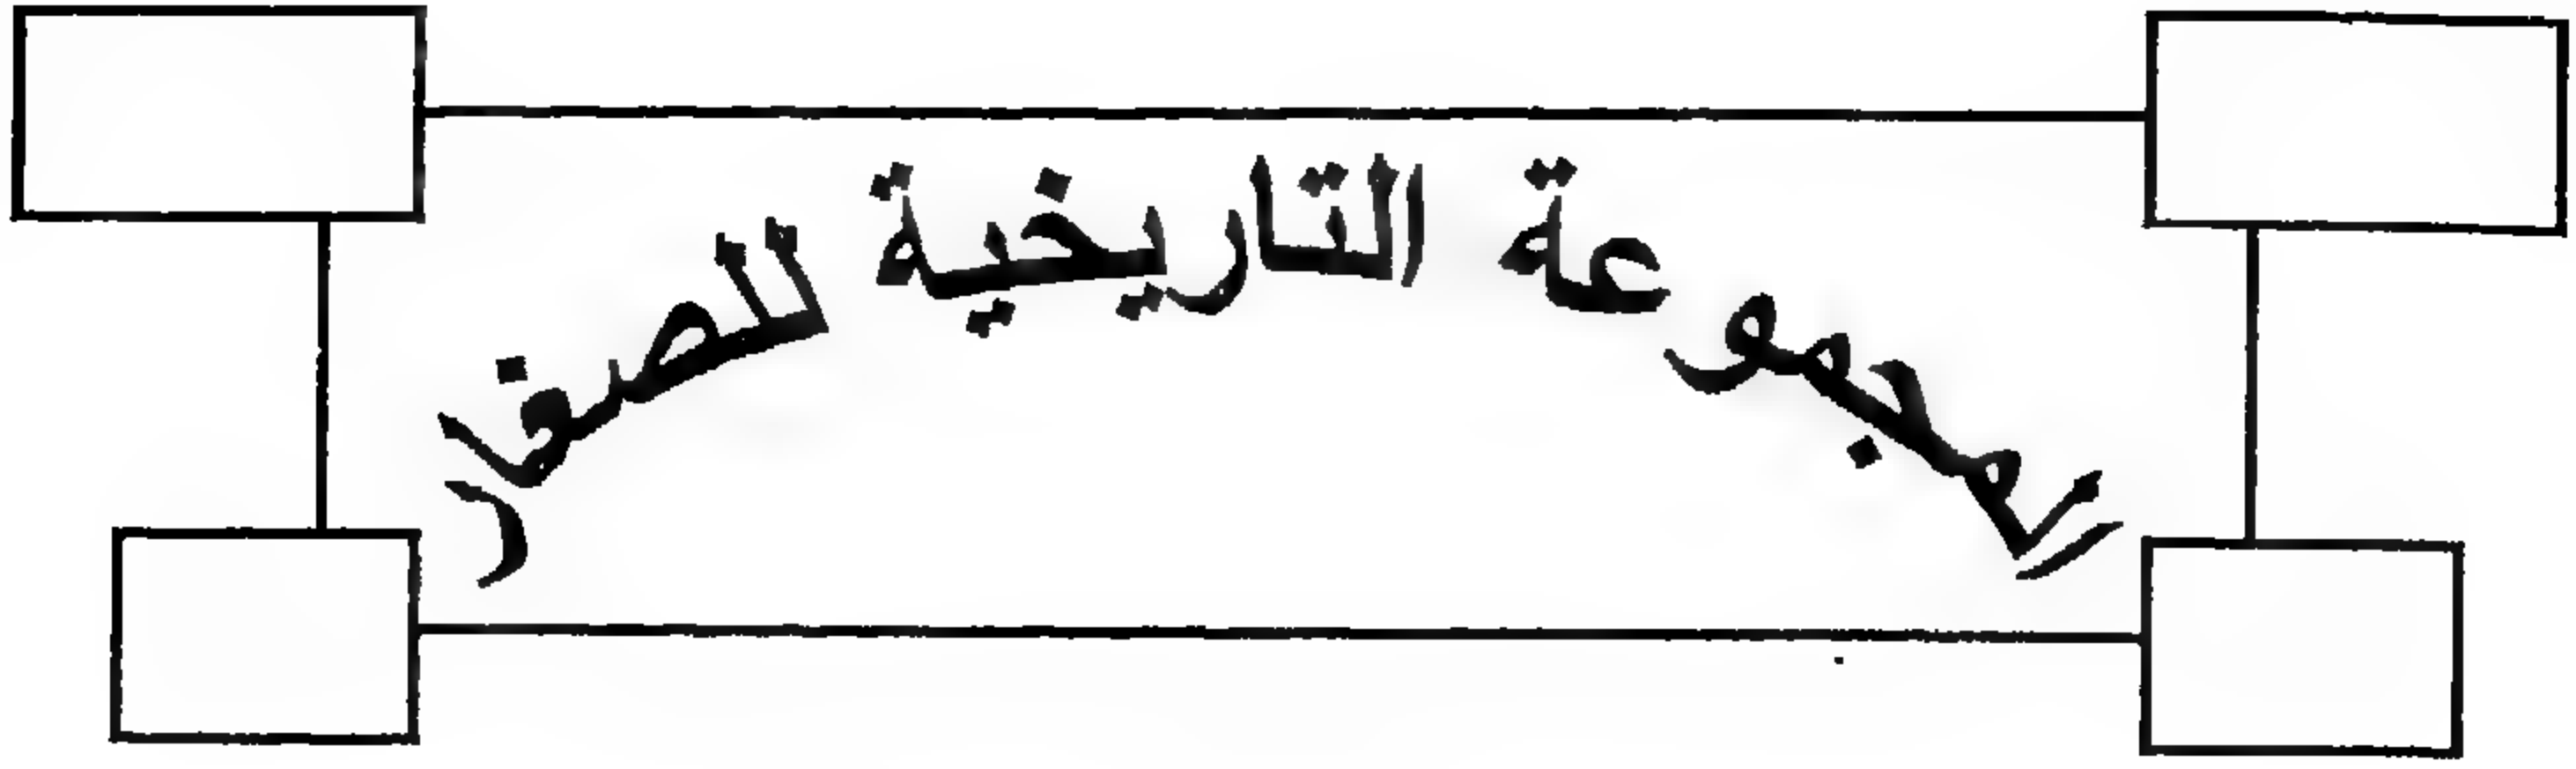 المجموعة التاريخية للصغار